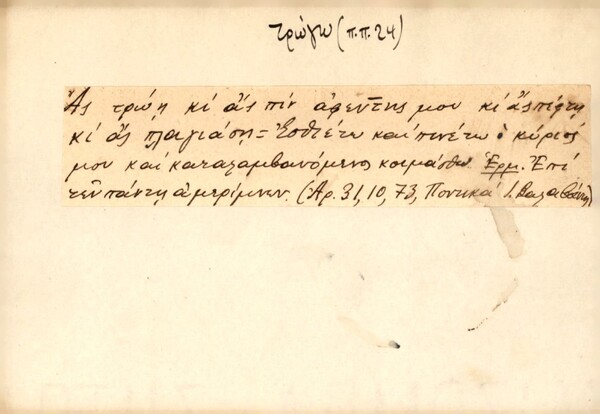 τρώγω (π.π. 24)
Ἂς τρώῃ κι ἂς πίν ἀφέντης μου κι ἂς πέφτῃ
κι ἂς πλαγιάσῃ = Ἐσθιέτω καὶ πινέτω ὁ κύριός
μου καὶ καταλαμβανόμενος κοιμάσθω Ἑρμ. Ἐπὶ
τῶν πάντῃ ἀμερίμνων. (Ἀρ. 31, 10, 73, Ποντικά Ι. Βαλαβάνης)